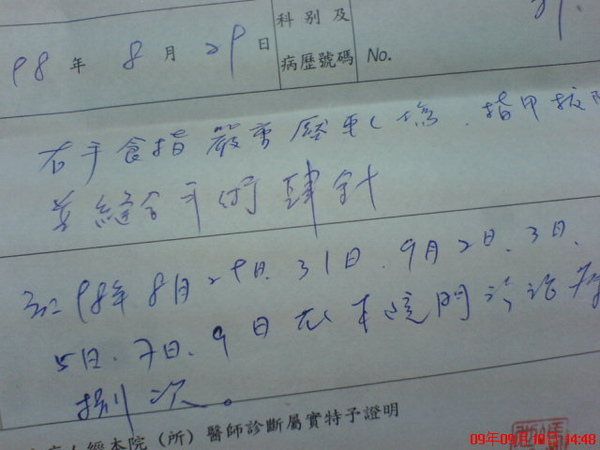 科別及
98 年 8 月 29 日 病歷號碼 No.
右手食指嚴重壓軋傷、指甲拔
並縫合手術肆針
於98年8月29日、31日、9月2日、3日、
5日、7日、9日在本院門診治療
捌次。
人經本院（所）醫師診斷屬實特予證明
09年09月10日 14:48